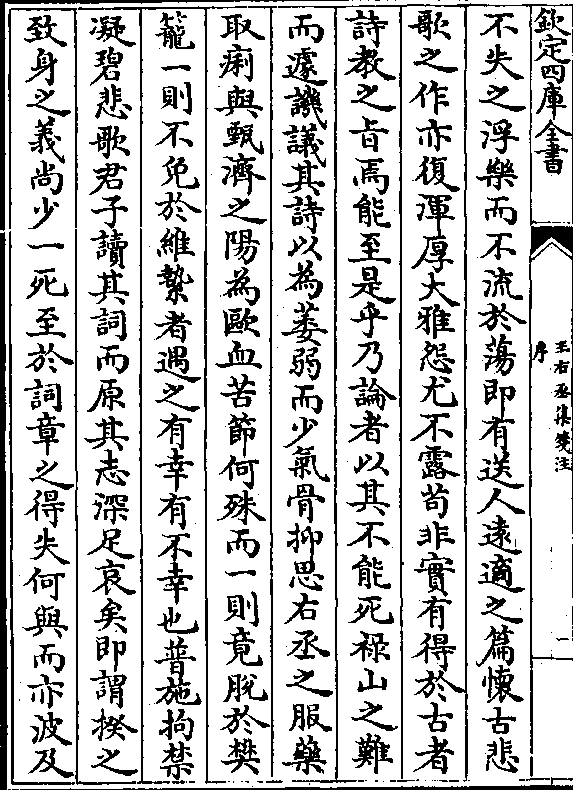 欽定四庫全書
王右丞集箋注
序
一
不失之浮樂而不流於蕩即有送人遠適之篇懷古悲
歌之作亦復渾厚大雅怨尤不露苟非實有得於古者
詩教之旨焉能至是乎乃論者以其不能死祿山之難
而遽譏議其詩以為萎弱而少氣骨抑思右丞之服藥
取痢與甄濟之陽為歐血苦節何殊而一則竟脫於樊
籠一則不免於維縶者遇之有幸有不幸也普施拘禁
凝碧悲歌君子讀其詞而原其志深足哀矣即謂揆之
致身之義尚少一死至於詞章之得失何與而亦波及